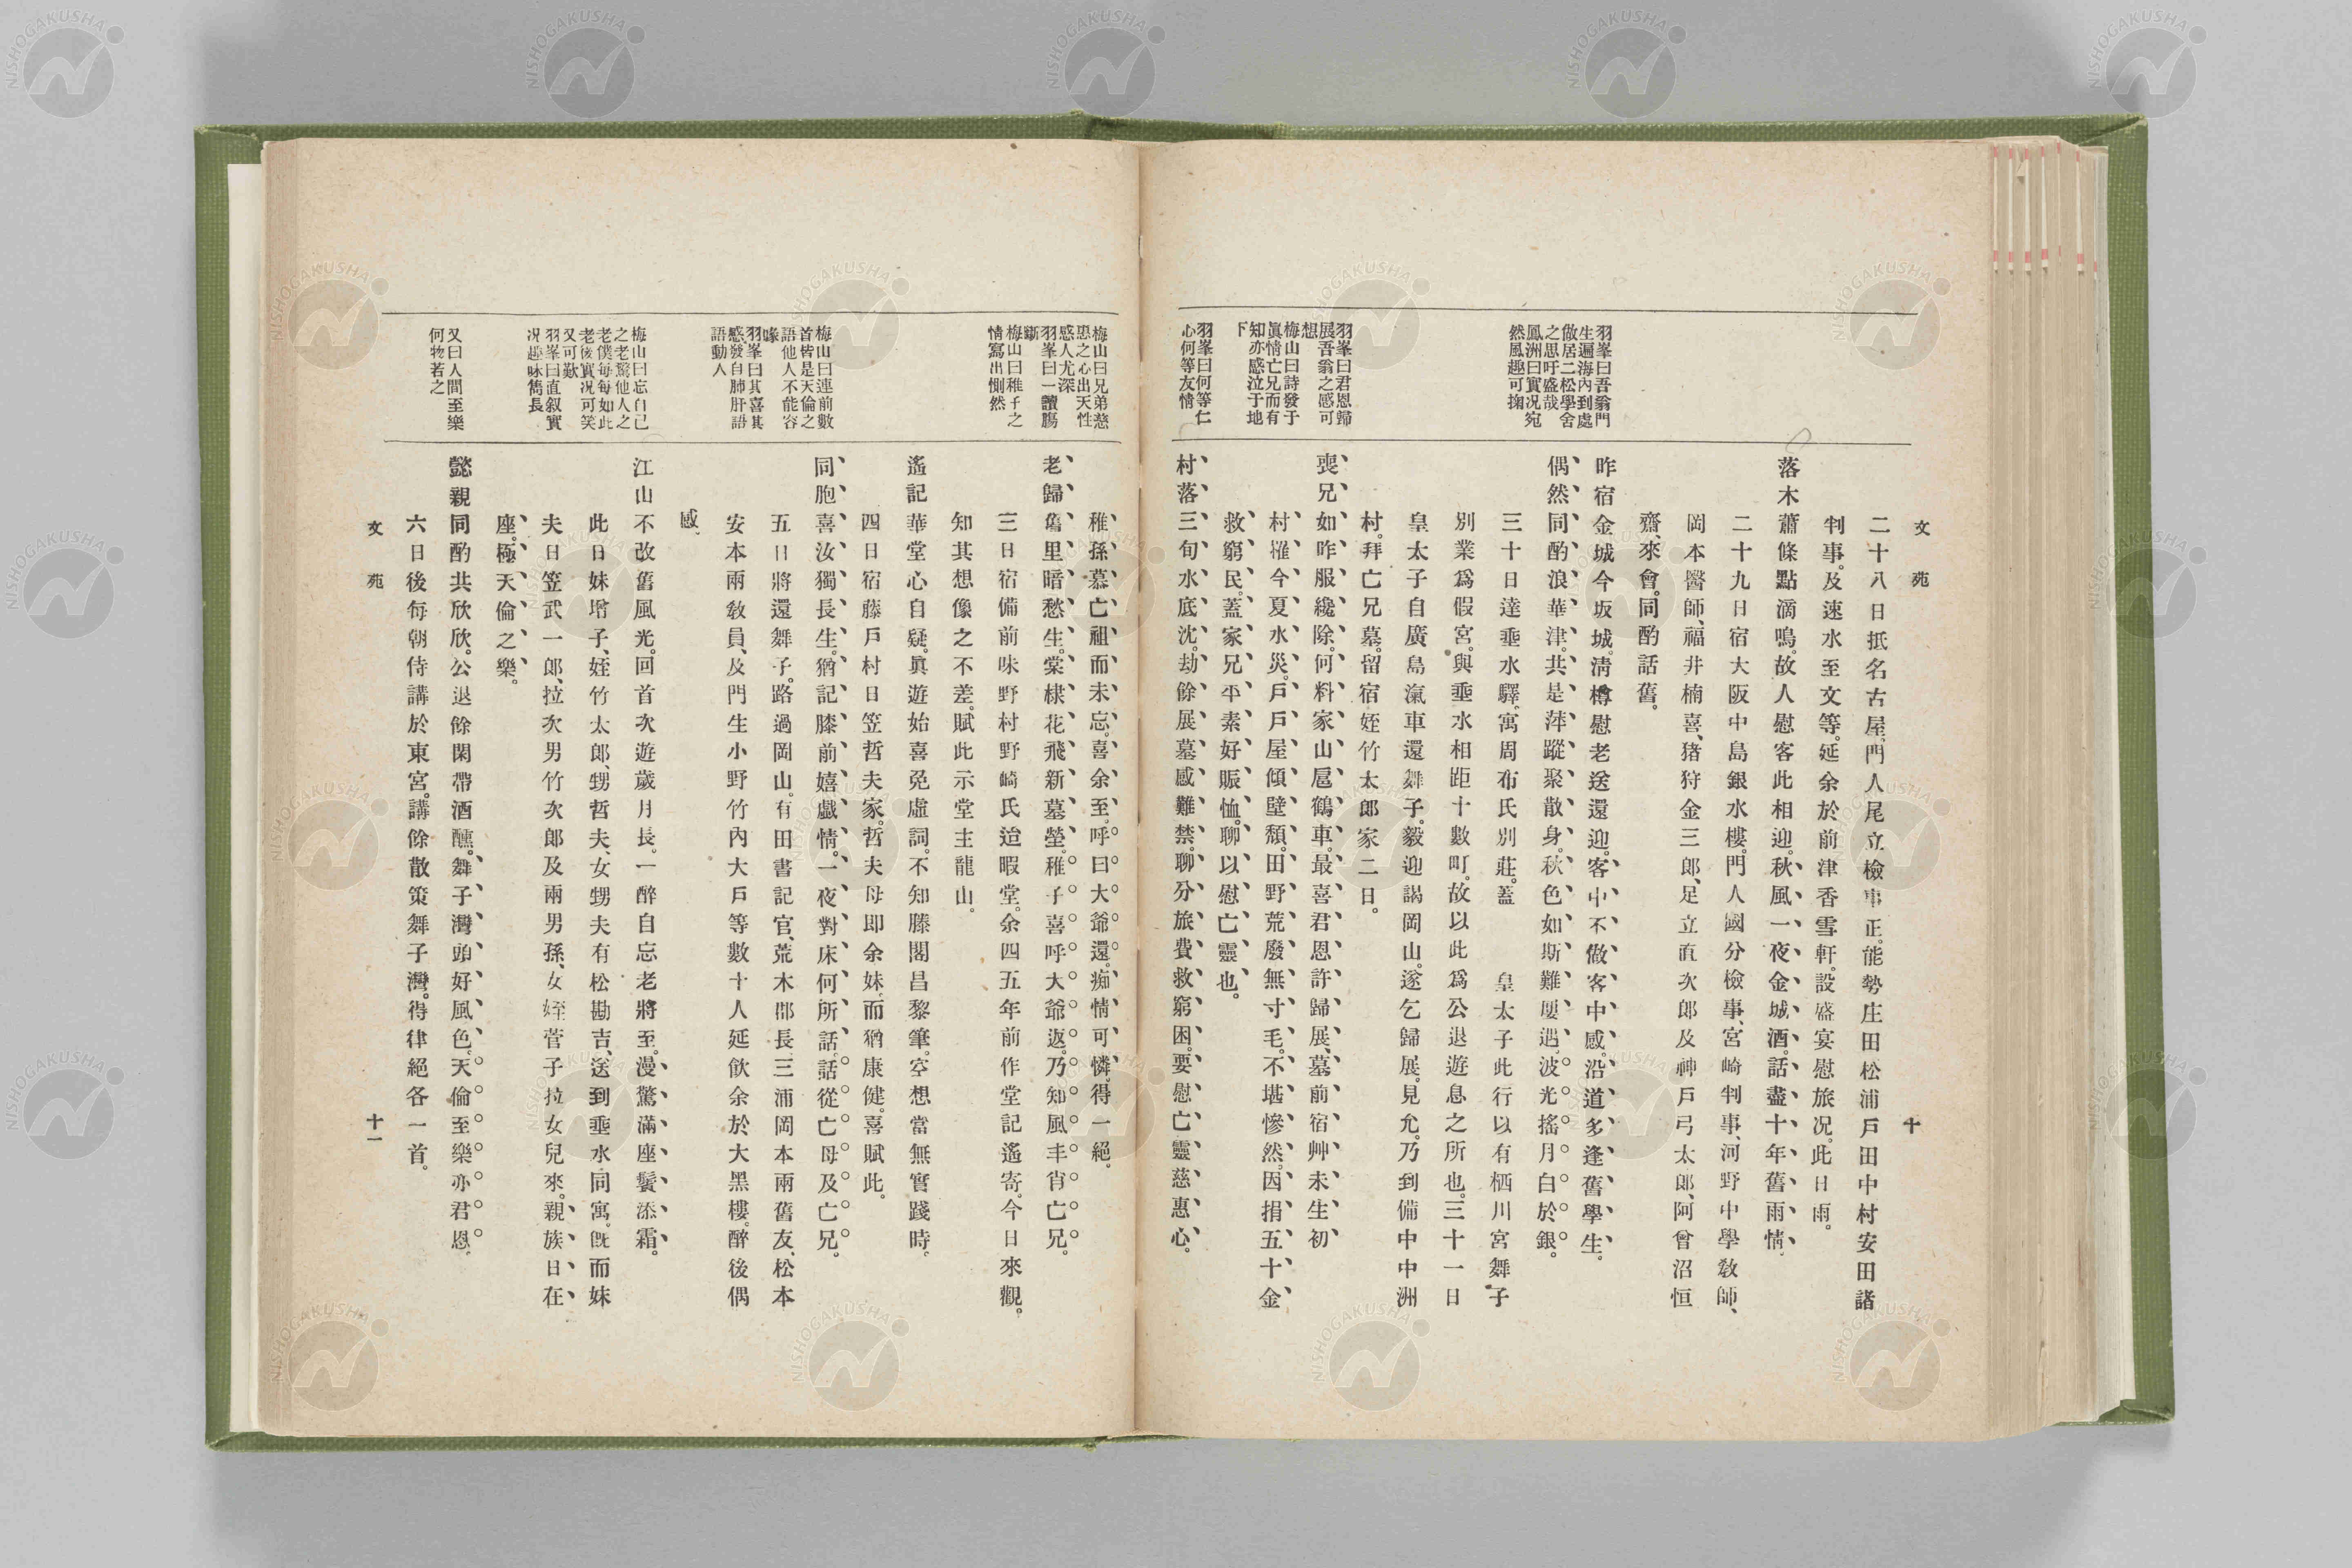 文苑
十
羽峯曰吾翁門
生遍海內到處
倣居二松學舍
之思吁盛哉
鳳洲曰實況宛
然風趣可掬
羽峯曰君恩歸
展吾翁之感可
想
梅山曰詩發于
眞情亡兄而有
知亦感泣于地
下
羽峯曰何等仁
心何等友情
二十八日抵名古屋、門人尾立檢事正。能勢庄田松浦戶田中村安田諸
判事。及速水至文等。延余於前津香雪軒。設盛宴慰旅況。此日雨。
落木蕭條點滴鳴。故人慰客此相迎。秋風一夜金城酒。話盡十年舊雨情。
二十九日宿大阪中島銀水樓。門人國分檢事、宮崎判事、河野中學敎師、
岡本醫師、福井楠喜、猪狩金三郎、足立直次郎及神戶弓太郎、阿曾沼恒
齋、來會。同酌話舊。
昨宿金城今坂城。淸樽慰老送還迎。客中不做客中感。沿道多逢舊學生。
偶然同酌浪華津。共是萍蹤聚散身。秋色如斯難屢遇。波光搖月白於銀。
三十日達垂水驛。寓周布氏別莊。蓋　皇太子此行以有栖川宮舞子
別業爲假宮。與垂水相距十數町。故以此爲公退遊息之所也。三十一日
皇太子自廣島滊車還舞子。毅迎謁岡山。遂乞歸展。見允。乃到備中中洲
村。拜亡兄墓。留宿姪竹太郎家二日。
喪兄如昨服纔除。何料家山扈鶴車。最喜君恩許歸展。墓前宿艸未生初
村罹今夏水災。戶戶屋傾壁頹。田野荒廢無寸毛。不堪慘然。因捐五十金
救窮民。蓋家兄平素好賑恤。聊以慰亡靈也。
村落三旬水底沈。劫餘展墓感難禁。聊分旅費救窮困。要慰亡靈慈惠心。
梅山曰兄弟慈
惠之心出天性
感人尤深
羽峯曰一讀腸
斷
梅山曰稚子之
情寫出惻然
梅山曰連前數
首皆是天倫之
語他人不能容
喙
羽峯曰其喜其
感發自肺肝語
語動人
梅山曰忘自己
之老驚他人之
老僕每每如此
老後實況可笑
又可歎
羽峯曰直叙實
況趣味雋長
又曰人間至樂
何物若之
稚孫慕亡祖而未忘。喜余至。呼曰大爺還。痴情可憐。得一絕。
老歸舊里暗愁生。棠棣花飛新墓塋。稚子喜呼大爺返。乃知風丰肖亡兄。
三日宿備前味野村野崎氏迨暇堂。余四五年前作堂記遙寄。今日來觀。
知其想像之不差。賦此示堂主龍山。
遙記華堂心自疑。眞遊始喜免虛詞。不知滕閣昌黎筆。空想當無實踐時。
四日宿藤戶村日笠哲夫家。哲夫母卽余妹、而猶康健。喜賦此。
同胞喜汝獨長生。猶記膝前嬉戲情。一夜對床何所話。話從亡母及亡兄。
五日將還舞子。路過岡山。有田書記官、荒木郡長、三浦岡本兩舊友、松本
安本兩敎員、及門生小野竹內大戶等數十人延飮余於大黑樓。醉後偶
感。
江山不改舊風光。回首次遊歲月長。一醉自忘老將至。漫驚滿座鬢添霜。
此日妹增子、姪竹太郎、甥哲夫、女甥夫有松勘吉、送到垂水同寓。旣而妹
夫日笠武一郎、拉次男竹次郎及兩男孫、女姪菅子拉女兒來。親族日在
座。極天倫之樂。
懿親同酌共欣欣。公退餘閑帶酒醺。舞子灣頭好風色。天倫至樂亦君恩。
六日後每朝侍講於東宮。講餘散策舞子灣。得律絕各一首。
文苑
十一